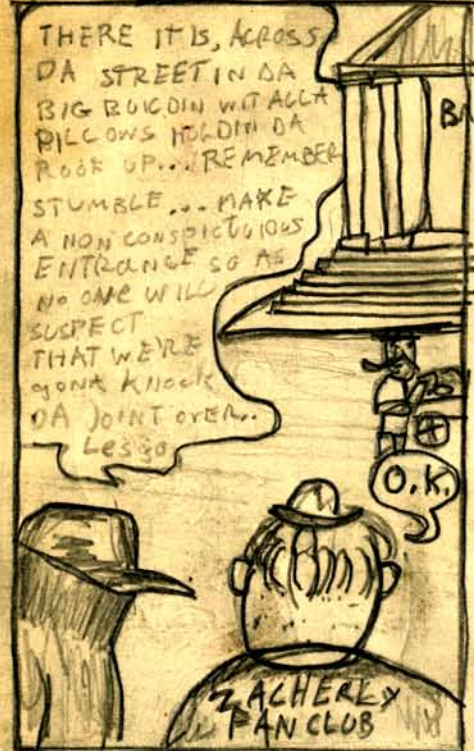 THERE IT IS, ACROSS
DA STREET IN DA
BIG BUILDIN WIT ALLA
PILLOWS HOLDIN DA
ROOF UP... REMEMBER
STUMBLE... MAKE
A NON CONSPICUIOUS
ENTRANCE SO AS
NO ONE WILL
SUSPECT
THAT WE'RE
gonA Knock
DA JOINT OVER..
Lesgo
BA
O.K.
ZACHERLY
FAN CLUB